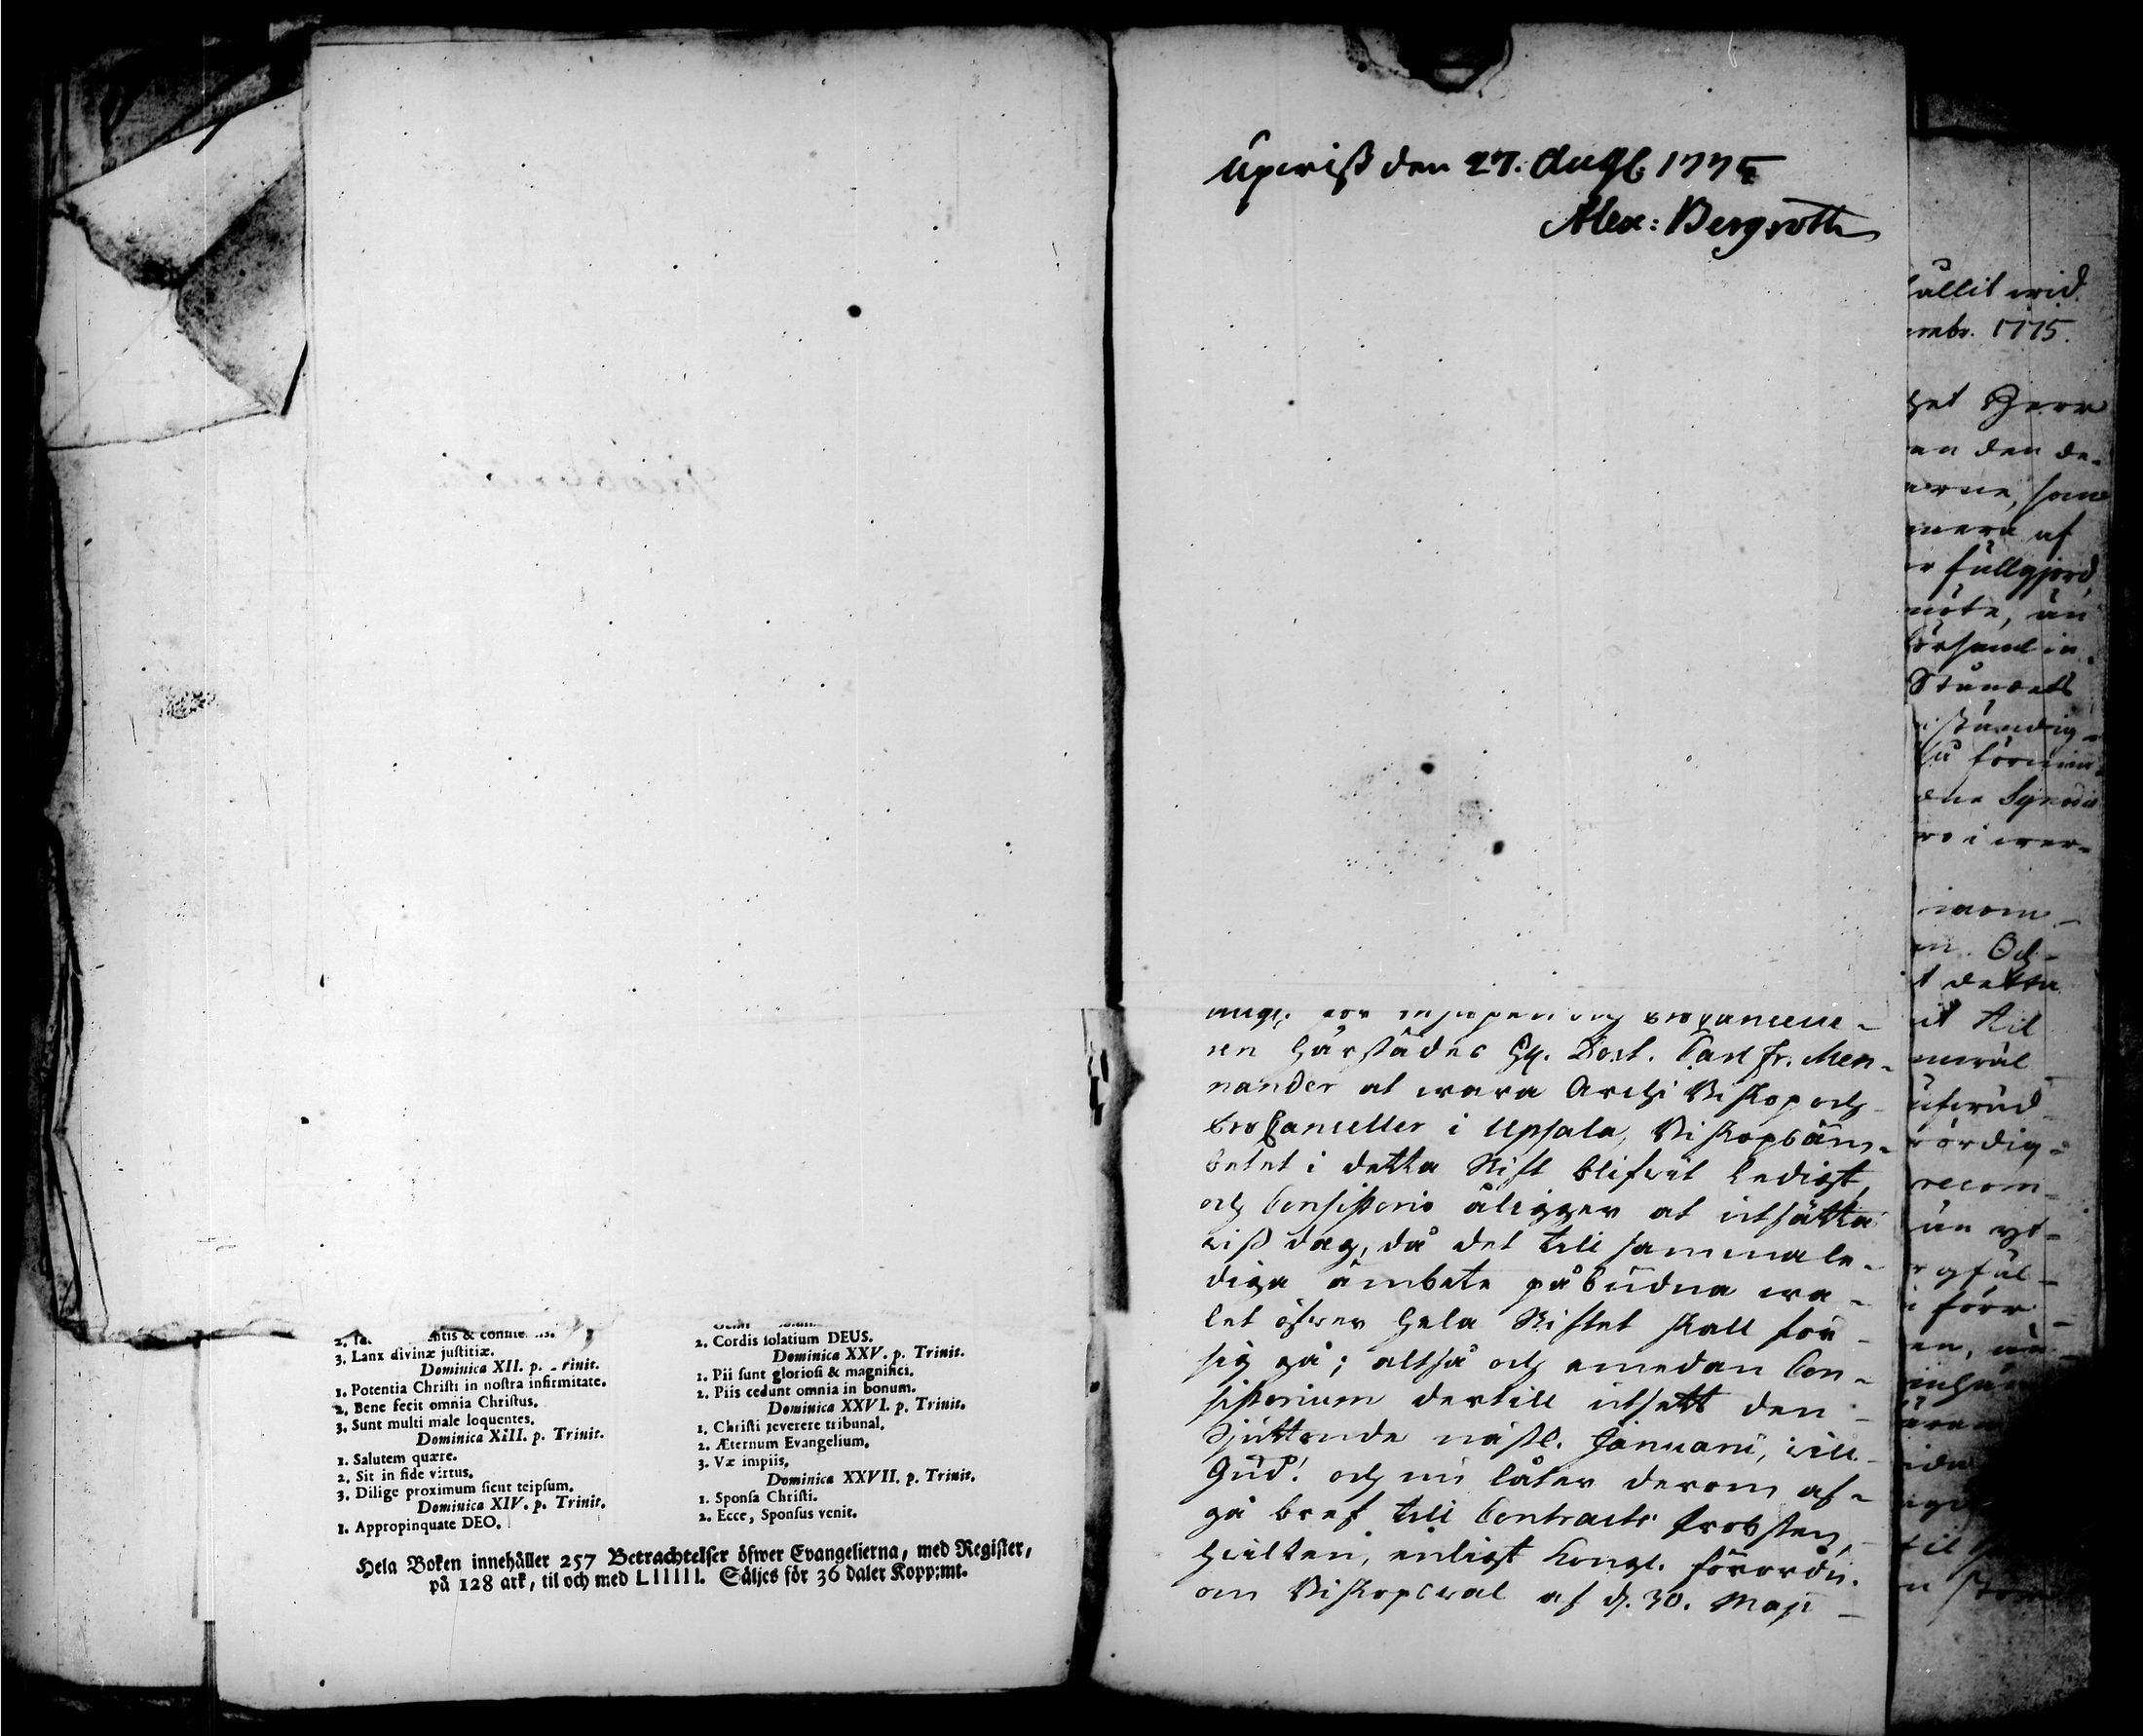 3. Lanx divinæ justitiæ.
Dominica XII. p. Trinit.
1. Potentia Christi in nostra infirmitate.
2. Bene fecit omnia Christus.
3. Sunt multi male loquentes.
Dominica XIII. p. Trinit.
1. Salutem quære.
2. Sit in fide virtus.
3. Dilige proximum sicut teipsum.
Dominica XIV. p. Trinit.
1. Appropinquate DEO.
2. Cordis solatium DEUS.
Dominica XXV. p. Trinit.
1. Pii sunt gloriosi & magnifici.
2. Piis cedunt omnia in bonum.
Dominica XXVI. p. Trinit.
1. Christi reverere tribunal.
2. Æternum Evangelium.
3. Væ impiis.
Dominica XXVII. p. Trinit.
1. Sponsa Christi.
2. Ecce, Sponsus venit.
Hela Boken innehåller 257 Betrachtelser öfwer Evangelierna, med Register,
på 128 ark, til och med Llllll. Säljes för 36 daler Kopp:mt.
Upwist den 27. Aug. 1775
Alex: Bergroth
sen härstädes Hr. Doct. Carl Fr. Men-
nander at wara Archi Biskop och
ProCanceller i Upsala, Biskopsäm-
betet i detta Stift blifwit ledigt,
och Consistorio åligger at utsätta
wiss dag, då det till samma le-
diga ämbete påbudna wa-
let öfwer hela Stiftet skall för
sig gå; altså och emedan Con-
sistorium dertill utsett den
Sjuttonde näste. Januarii, will
Gud! och nu låter derom af-
gå bref till Contracts Probsten,
hwilken, enligt Kongl. Förordn.
om Biskopswal af d. 30. Maji
allit wid
embr. 1775.
het Herr
an den de-
erne, som
mera af
er fullgjord
möte, än
församlin
Stundeli
ständig
ene Synodi
ro i wer-
inom
en. Och
t detta
it til
recom-
än yt-
i förr
en, än
til